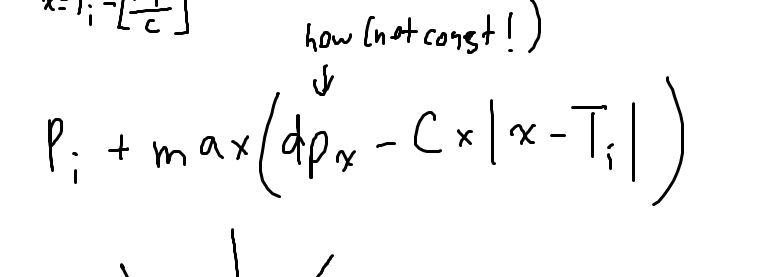 x=T_i-[
c]
how (not const!)
↓
P_i + max(dp_x - C × |x - T_i|)